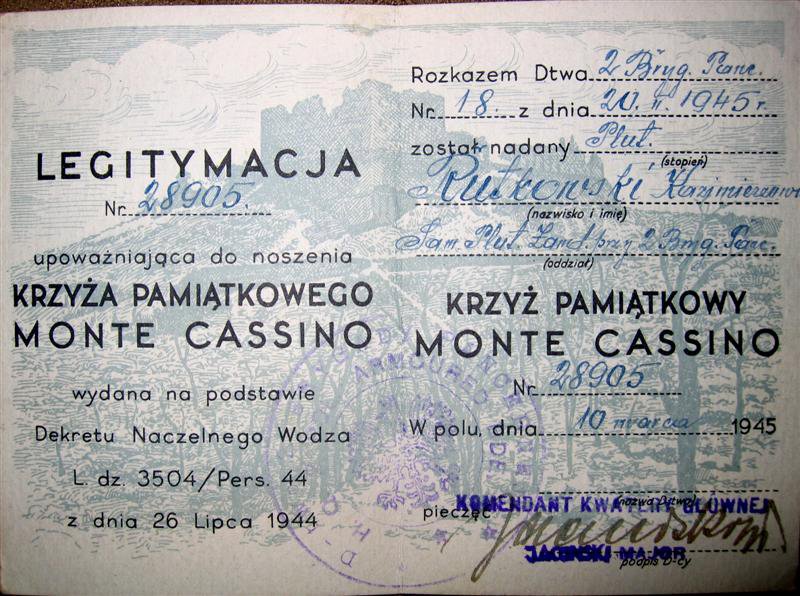 LEGITYMACJA
Nr. 28905.
upoważniająca do noszenia
KRZYŻA PAMIĄTKOWEGO
MONTE CASSINO
wydana na podstawie
Dekretu Naczelnego Wodza
L. dz. 3504/Pers. 44
z dnia 26 Lipca 1944
Rozkazem Dtwa 2 Bryg. Panc.
Nr. 18. z dnia 20. II. 1945 r.
został nadany Plut.
(stopień)
Rutkowski Kazimierzowi
(nazwisko i imię)
Plut. Żand. przy 2 Bryg. Panc.
(oddział)
KRZYŻ PAMIĄTKOWY
MONTE CASSINO
Nr. 28905
W polu, dnia 10 marca 1945
(nazwa D-twa)
pieczęć KOMENDANT KWATERY GŁÓWNEJ
MAJOR
podpis D-cy
ARMOURED